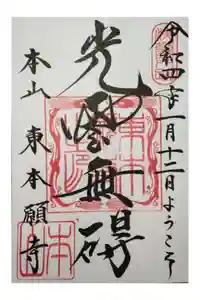 令和四年一月十二日ようこそ
光雲無碍
本山 東本願寺